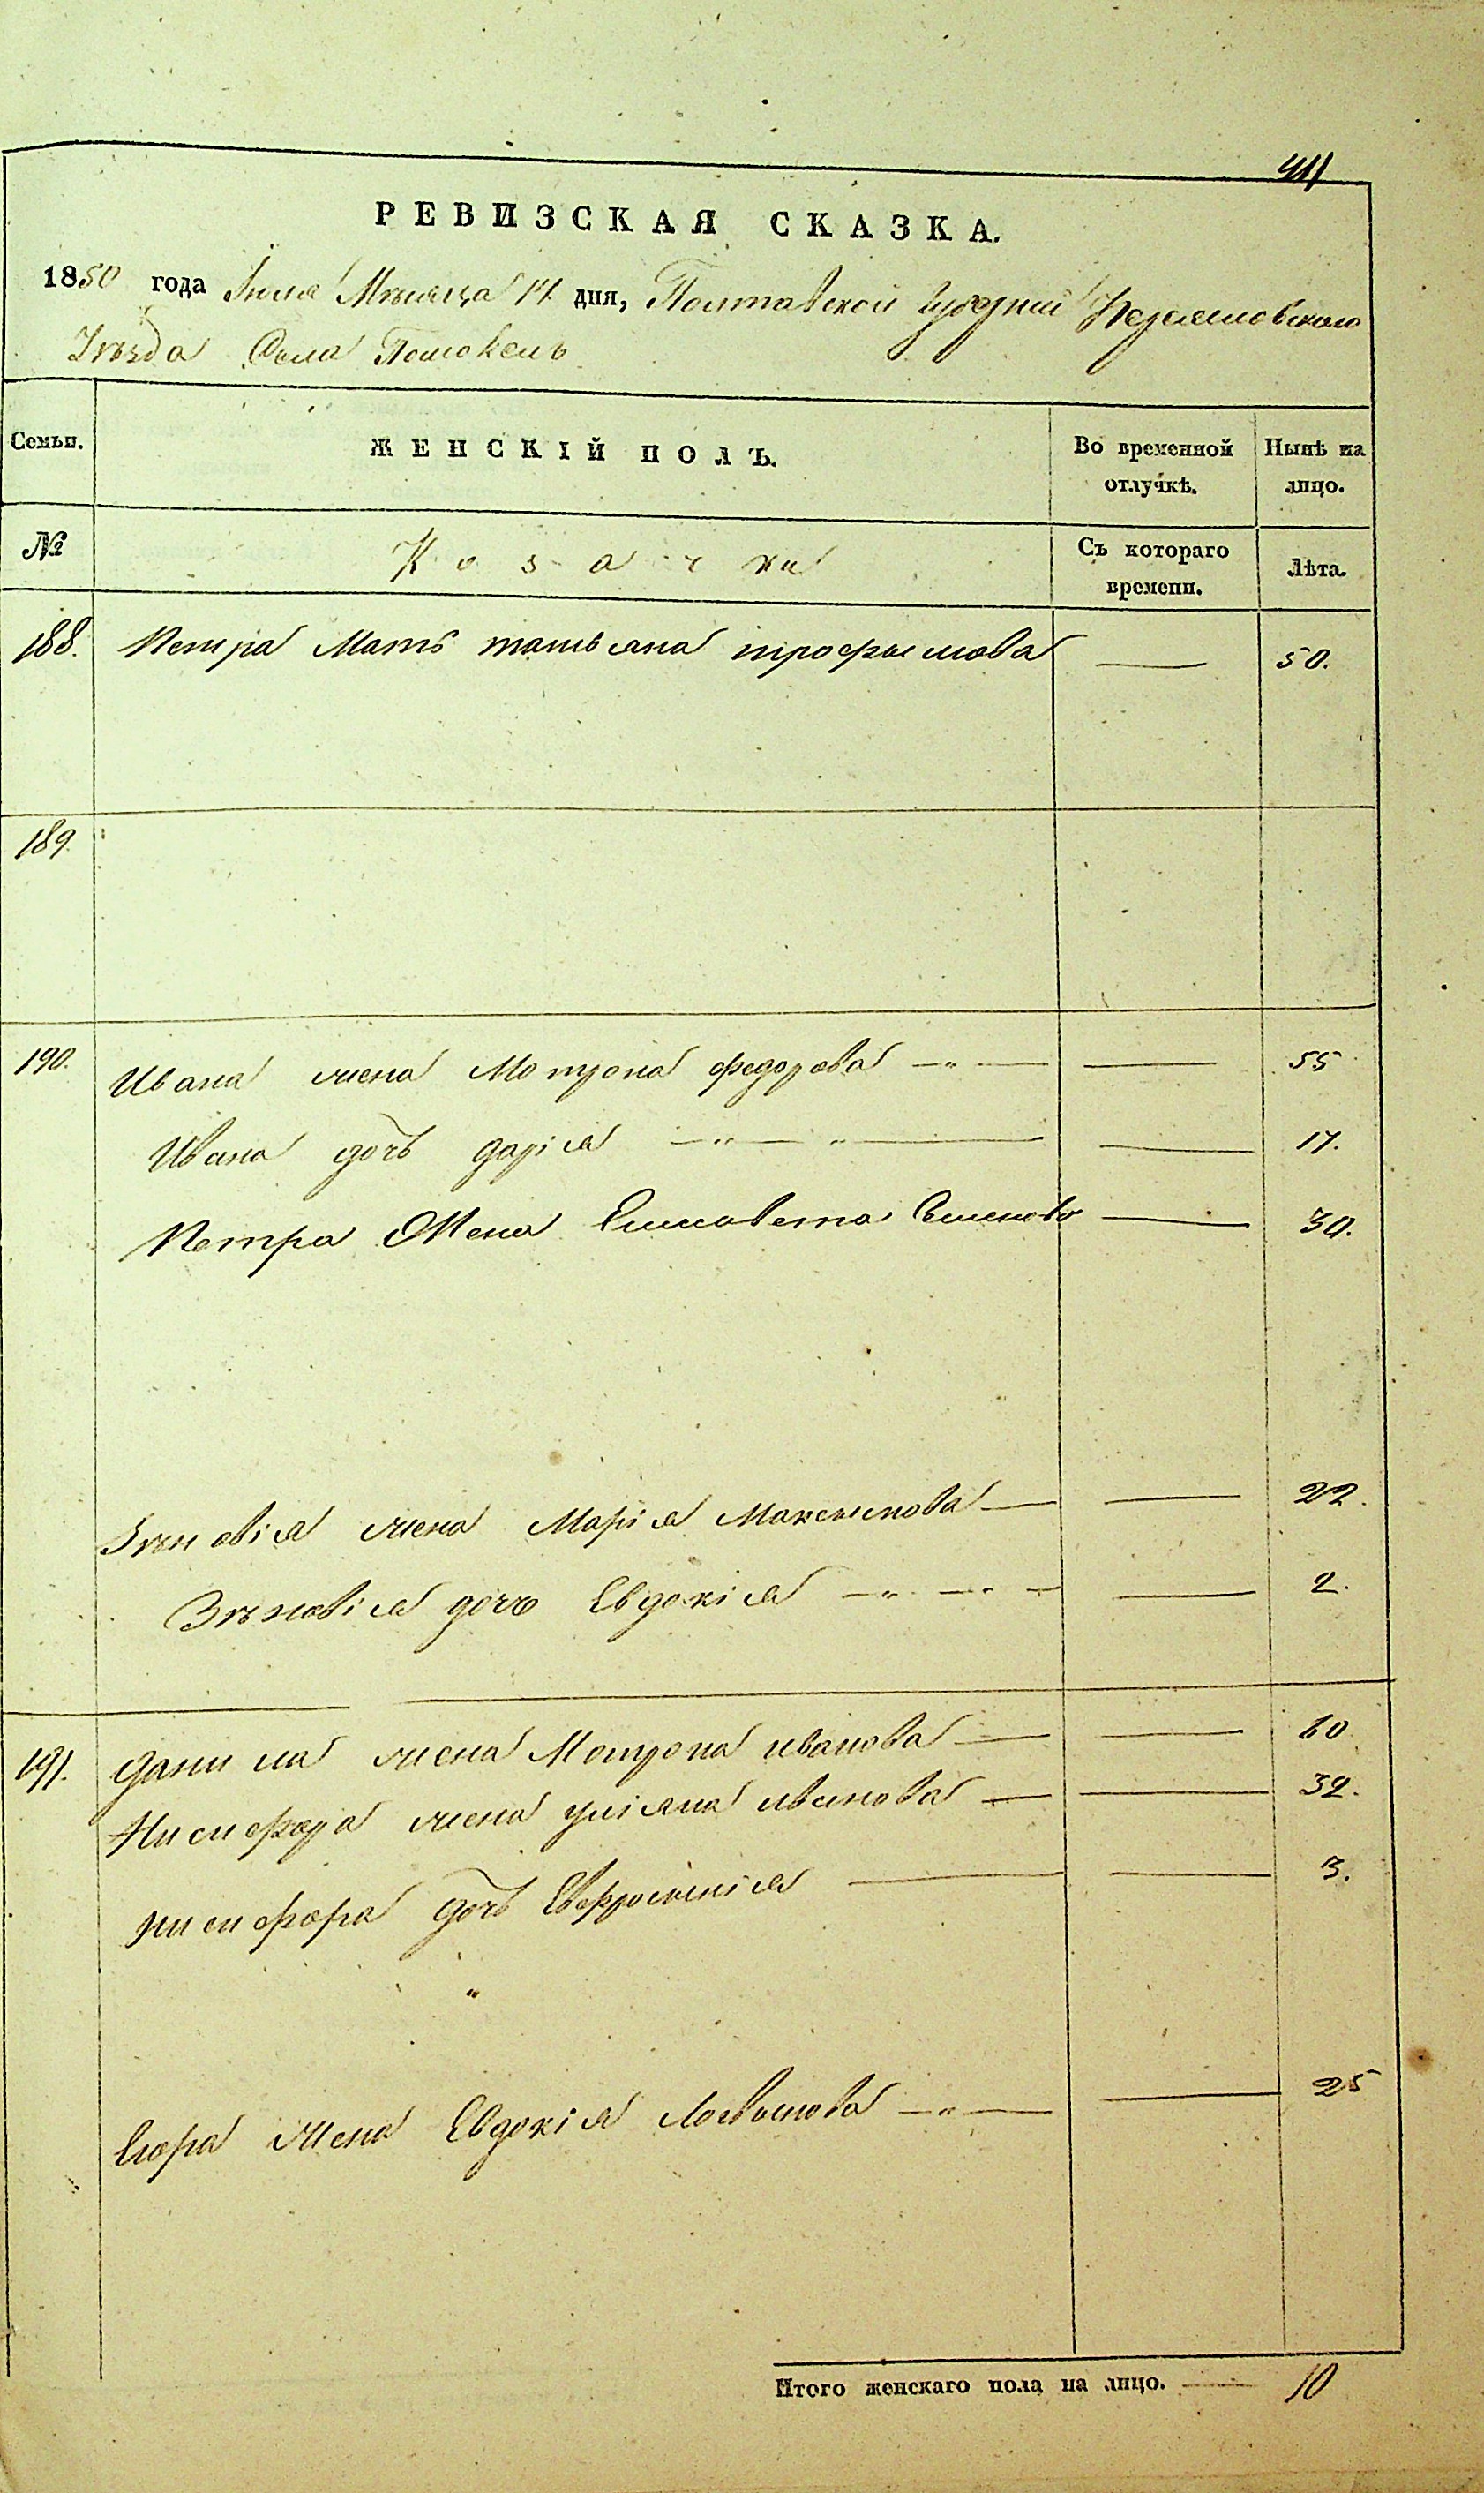 411
РЕВИЗСКАЯ СКАЗКА.
1850 года Июля Месяца 14 дня, Полтавской губернии Переяславского
Уѣзда Села Помоклей
Семьи. ЖЕНСКІЙ ПОЛЪ. Во временной отлучкѣ. Нынѣ на лицо.
№ Козачки Съ котораго времени. Лѣта.
188. Петра Мать татьяна трофымова — 50.
189.
190. Ивана жена Мотрона федорова —"— — 55
Ивана дочь дарія —"— "— — 17.
Петра Жена Елисавета Семенова — 30.
Зѣновія жена Марія Максымова — — 22.
Зѣновія дочь Евдокія —"— —"— — 2.
191. данила жена Мотрона иванова — — 60
Нисифора жена уліяна иванова — — 32.
нисифора дочь Евфросинія — — 3.
"
Егора Жена Евдокія —"— — 25
Итого женскаго пола на лицо. — 10